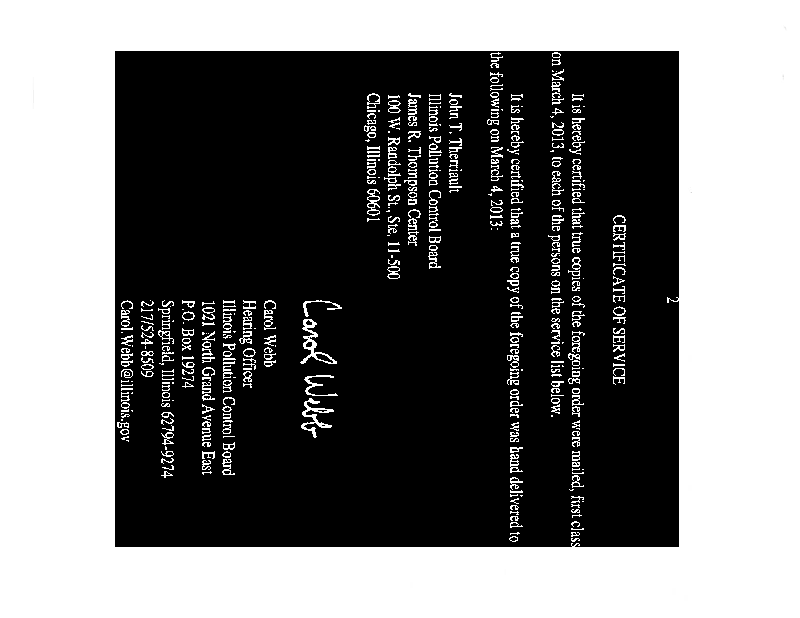 2
CERTIFICATE OF SERVICE
It is hereby certified that true copies of the foregoing order were mailed, first class
on March 4, 2013, to each of the persons on the service list below.
It is hereby certified that a true copy of the foregoing order was hand delivered to
the following on March 4, 2013:
John T. Therriault
Illinois Pollution Control Board
James R. Thompson Center
100 W. Randolph St., Ste. 11-500
Chicago, Illinois 60601
Carol Webb
Carol Webb
Hearing Officer
Illinois Pollution Control Board
1021 North Grand Avenue East
P.O. Box 19274
Springfield, Illinois 62794-9274
217/524-8509
Carol.Webb@illinois.gov